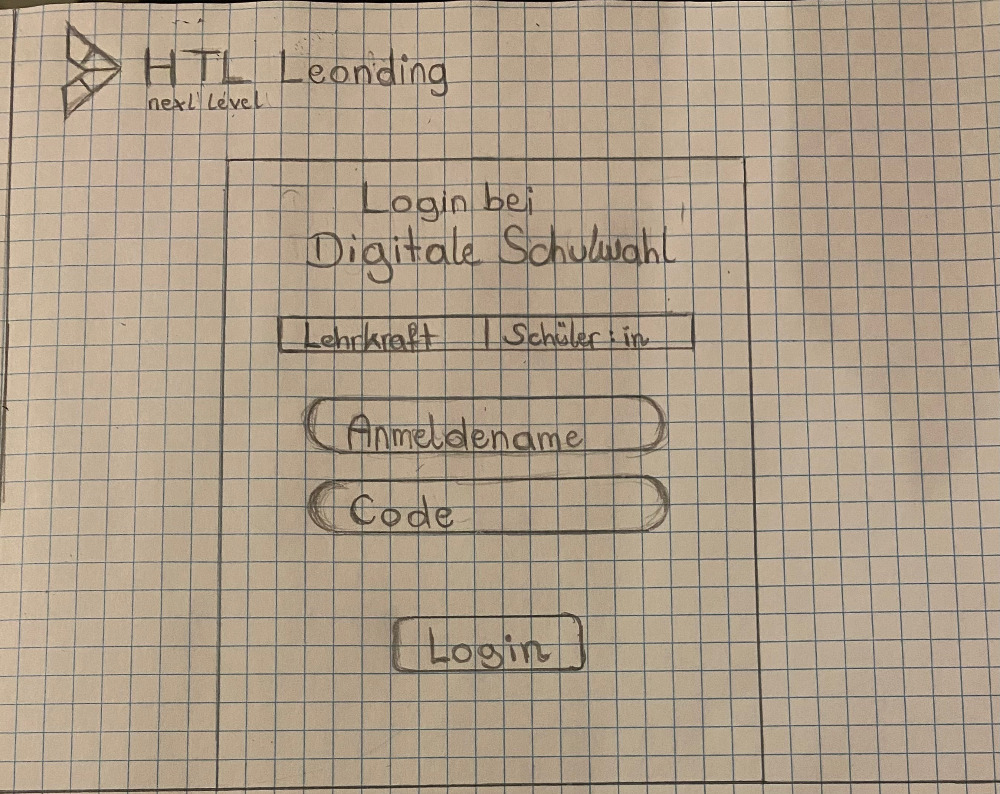 HTL Leonding
next level
Login bei
Digitale Schulwahl
Lehrkraft | Schüler:in
Anmeldename
Code
Login